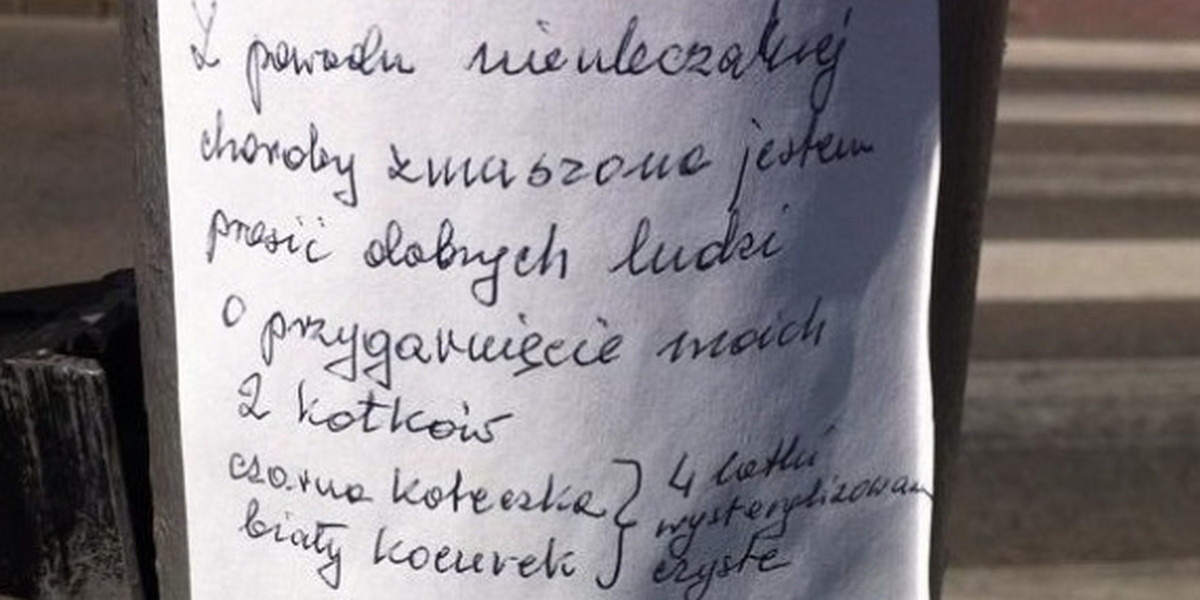 Z powodu nieuleczalnej
choroby zmuszona jestem
prosić dobrych ludzi
o przygarnięcie moich
2 kotków
czarna koteczka } 4 latki
wysterylizowan
biały kocurek } czyste